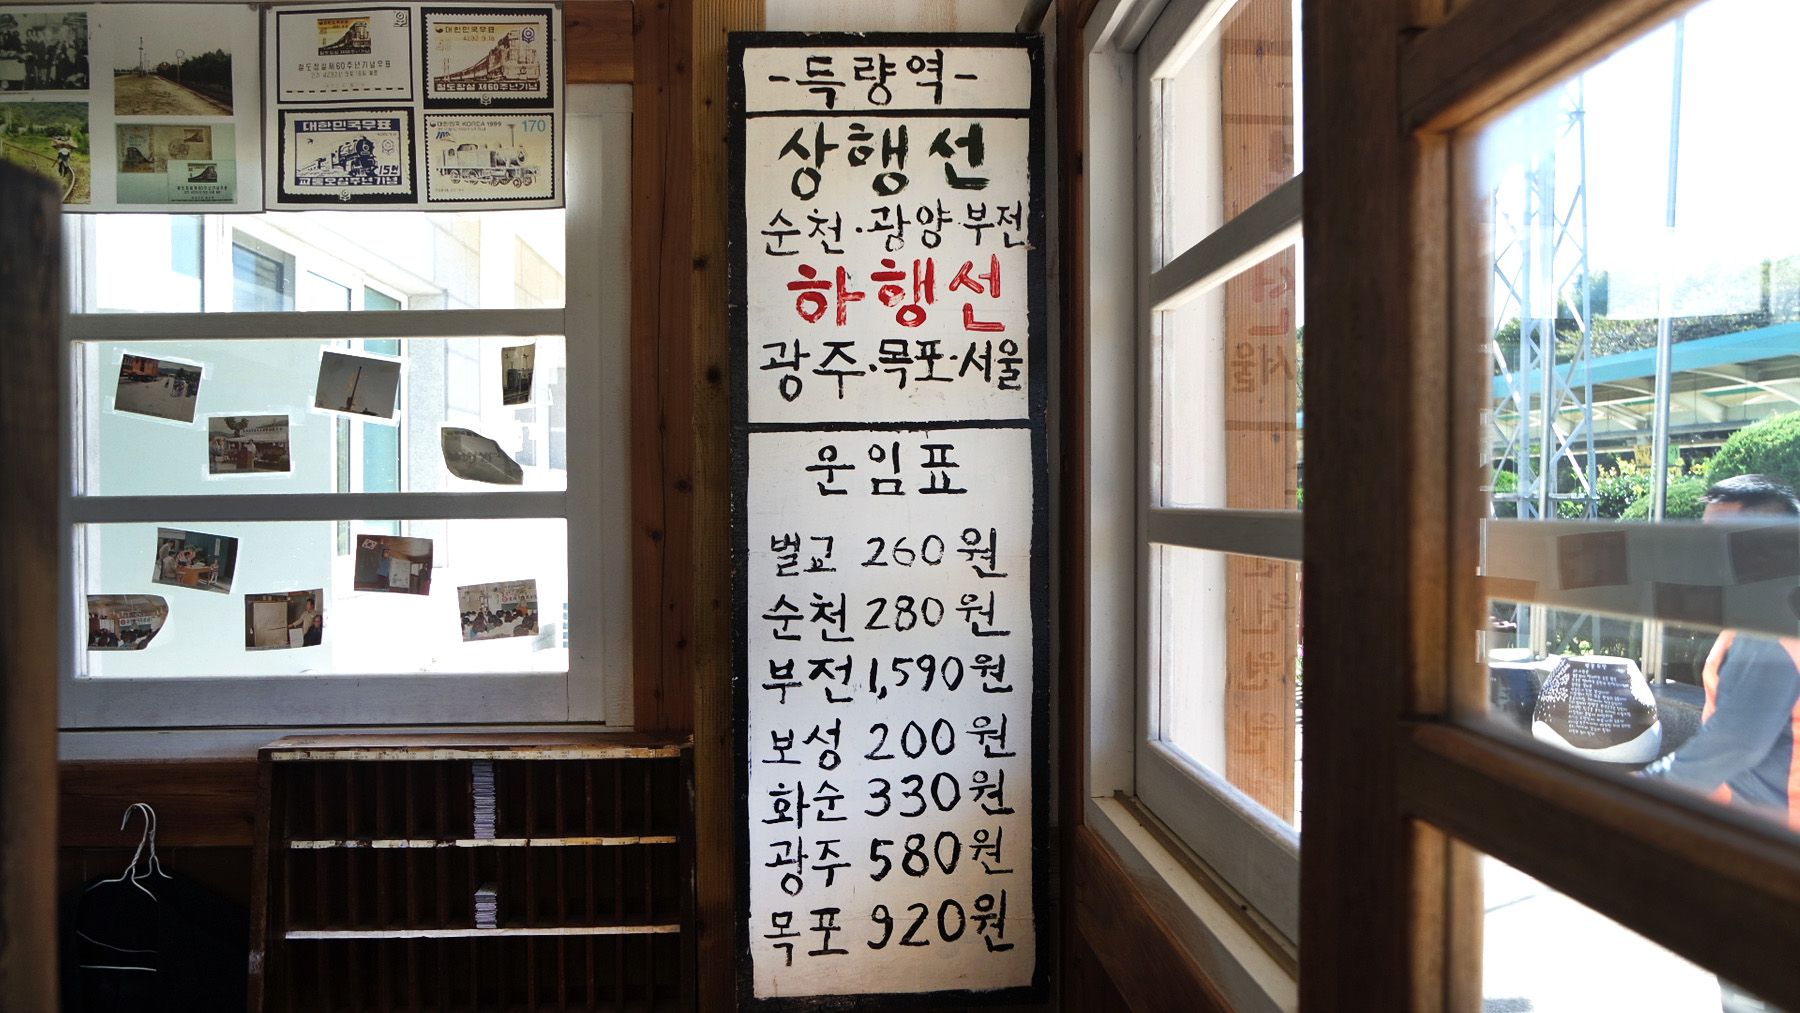 대한민국우표
4292.9.18
철도창설제60주년기념우표
철도창설 제60주년기념
대한민국우표
15원
교통모십주년기념
대한민국 KOREA 1999
170
-득량역-
상행선
순천·광양·부전
하행선
광주·목포·서울
운임표
벌교 260원
순천 280원
부전 1,590원
보성 200원
화순 330원
광주 580원
목포 920원